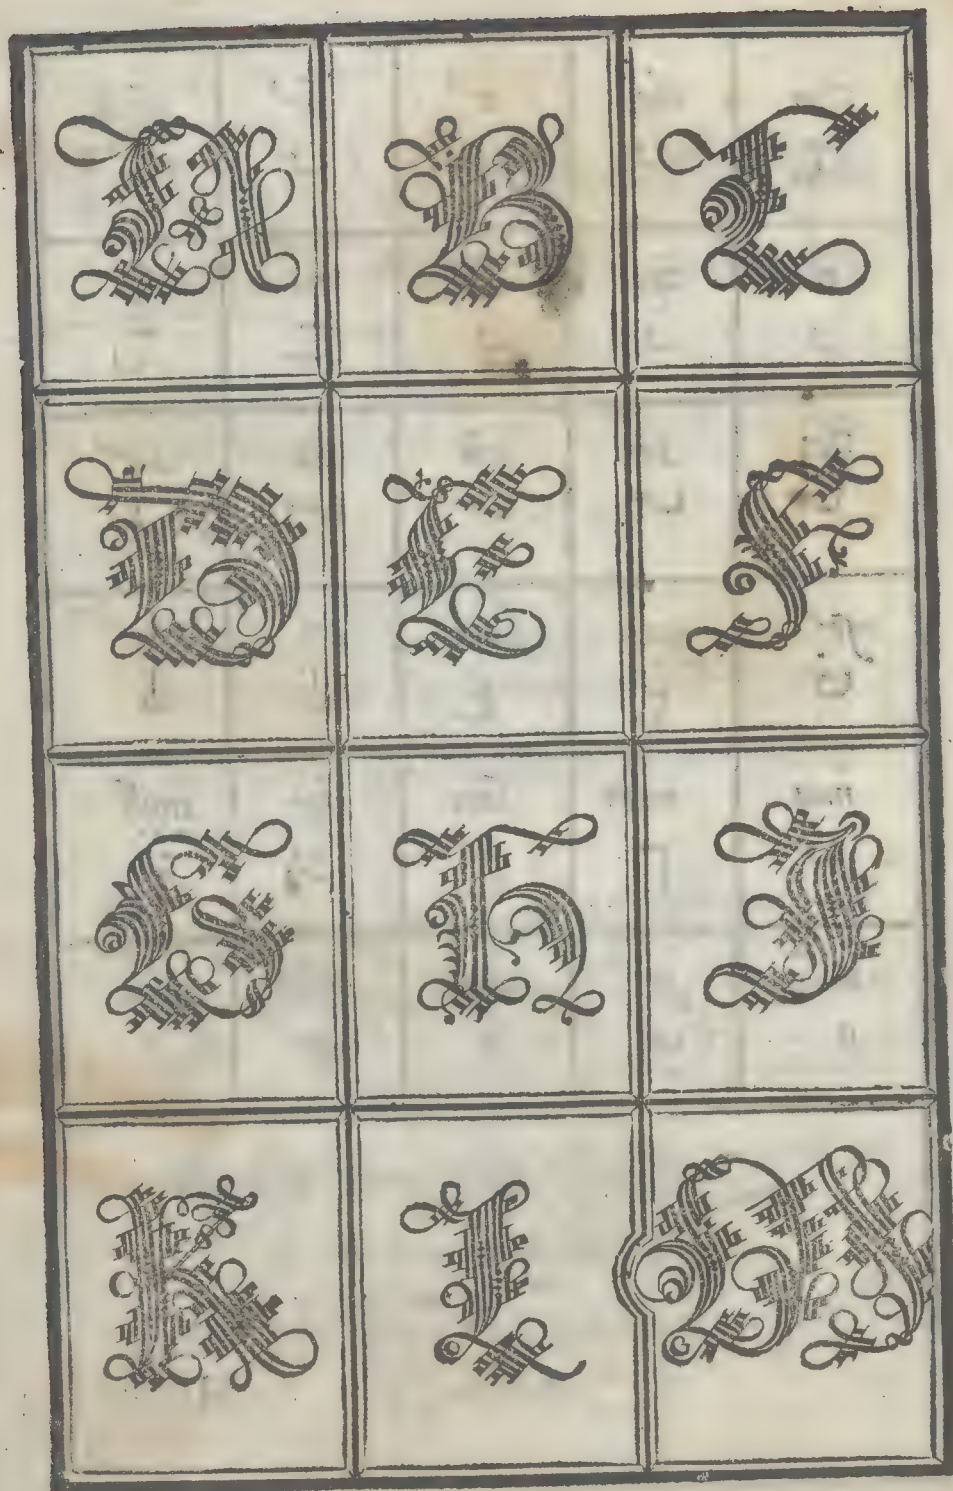 A B C
D E F
G H I
K L M